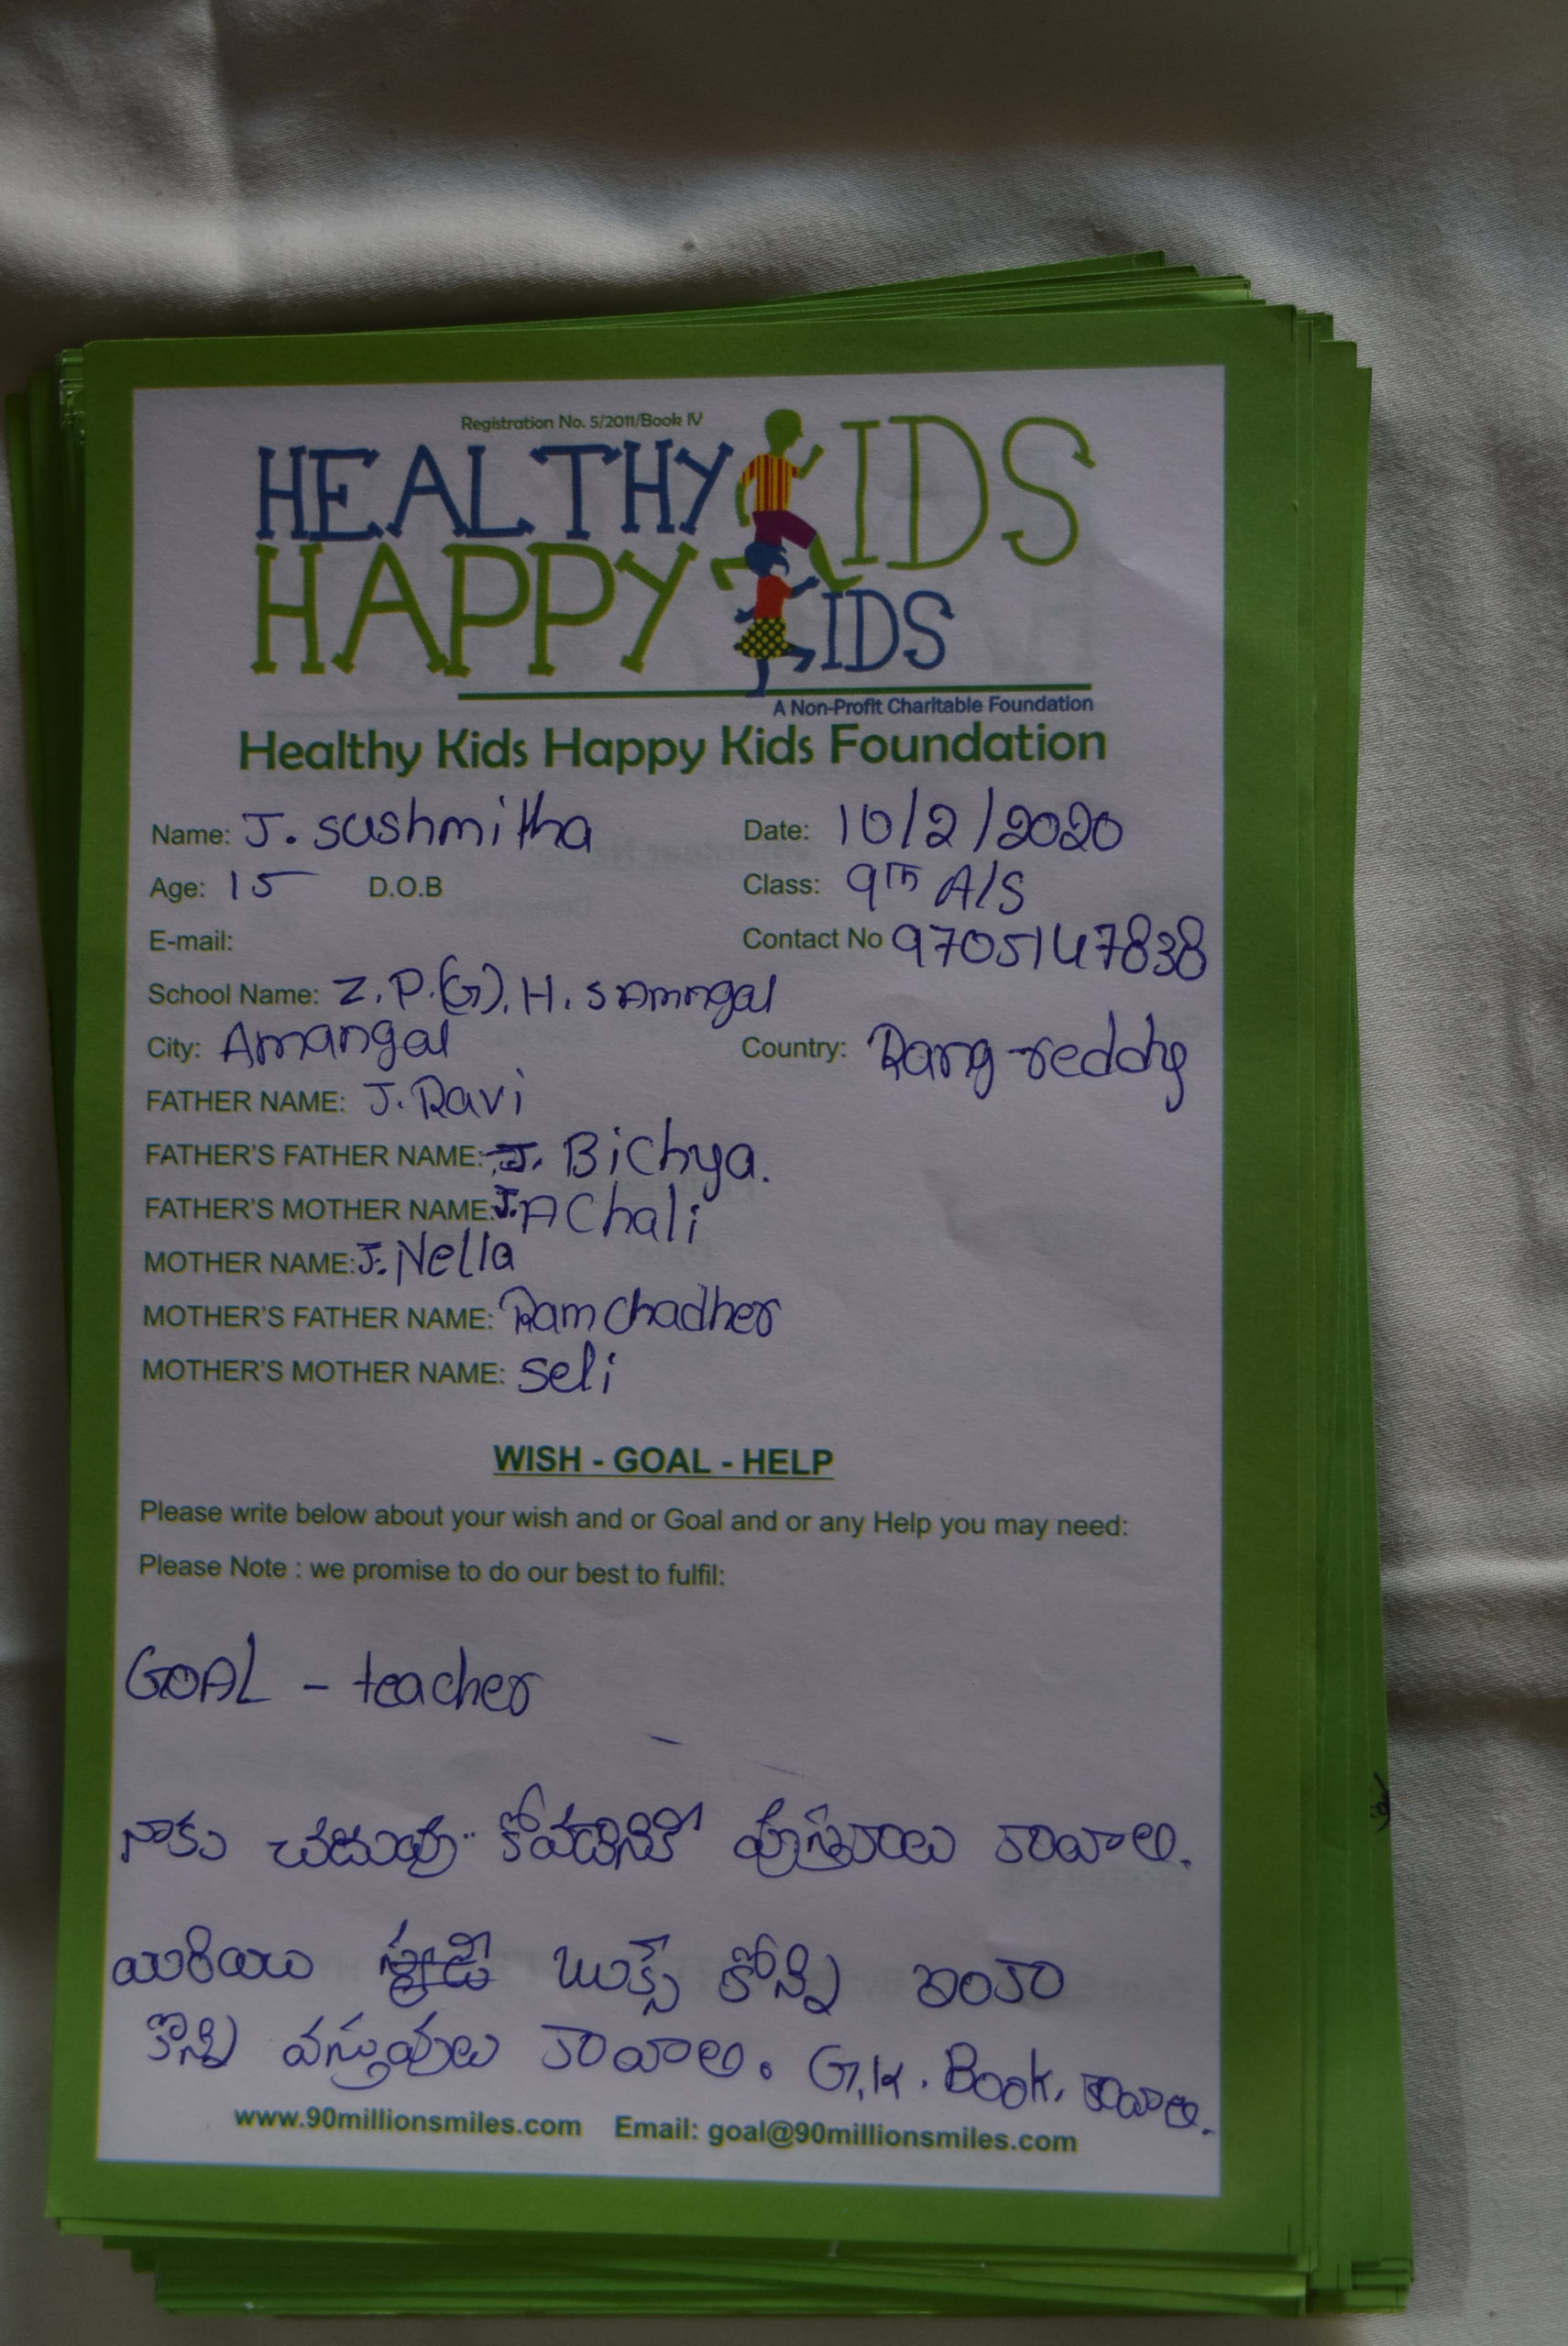 Registration No. 5/2011/Book IV
HEALTHY KIDS
HAPPY KIDS
A Non-Profit Charitable Foundation
Healthy Kids Happy Kids Foundation
Name: J. sushmitha Date: 10/2/2020
Age: 15 D.O.B Class: 9th A/S
E-mail: Contact No 9705147838
School Name: Z.P.(G).H.S Amngal
City: Amangal Country: Rang reddy
FATHER NAME: J. Ravi
FATHER'S FATHER NAME: J. Bichya.
FATHER'S MOTHER NAME: J. AChali
MOTHER NAME: J. Nella
MOTHER'S FATHER NAME: Ram chadher
MOTHER'S MOTHER NAME: seli
WISH - GOAL - HELP
Please write below about your wish and or Goal and or any Help you may need:
Please Note : we promise to do our best to fulfil:
GOAL - teacher
నాకు చదువు కోవడానికి పుస్తకాలు కావాలి.
మరియు బుక్స్ కోన్ని ఇంకా
కొన్ని వస్తువులు కావాలి. G.K. Book. కావాలి.
www.90millionsmiles.com Email: goal@90millionsmiles.com